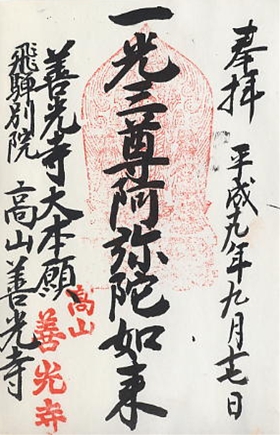 奉拝
平成十九年九月十七日
一光三尊阿弥陀如来
善光寺大本願
飛騨別院
高山善光寺
高山
善光寺